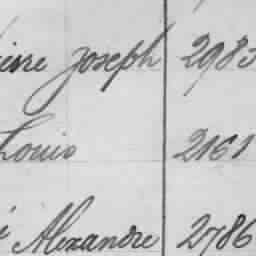 Joseph 2983
Louis 2161
Alexandre 2786